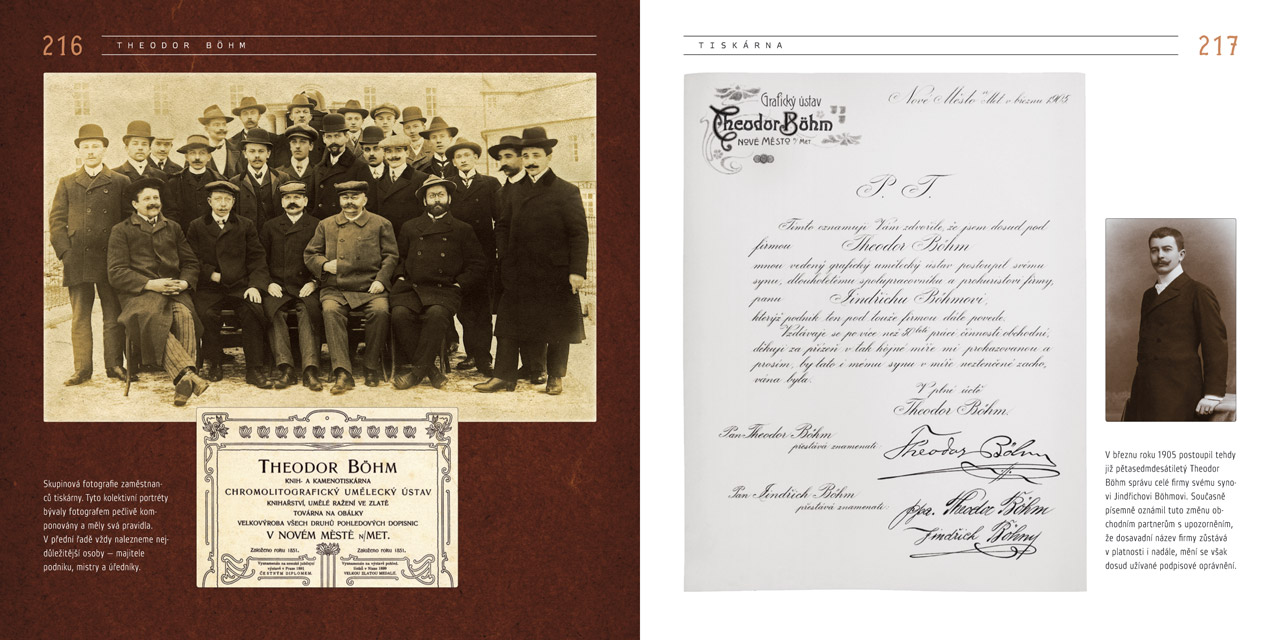 216
THEODOR BÖHM
Skupinová fotografie zaměstnan-
ců tiskárny. Tyto kolektivní portréty
bývaly fotografem pečlivě kom-
ponovány a měly svá pravidla.
V přední řadě vždy nalezneme nej-
důležitější osoby – majitele
podniku, mistry a úředníky.
THEODOR BÖHM
KNIH- A KAMENOTISKÁRNA
CHROMOLITOGRAFICKÝ UMĚLECKÝ ÚSTAV
KNIHAŘSTVÍ, UMĚLÉ RAŽENÍ VE ZLATĚ
TOVÁRNA NA OBÁLKY
VELKOVÝROBA VŠECH DRUHŮ POHLEDOVÝCH DOPISNIC
V NOVÉM MĚSTĚ N/MET.
Založeno roku 1851. Založeno roku 1851.
Vyznamenáno na zemské jubilejní
výstavě v Praze 1891
ČESTNÝM DIPLOMEM.
Vyznamenáno na výstavě pohled.
lístků v Nizze 1899
VELKOU ZLATOU MEDAILÍ.
TISKÁRNA
217
Grafický ústav
Theodor Böhm
NOVÉ MĚSTO n/ MET.
Nové Město n/Met. v březnu 1905
P. T.
Tímto oznamuji Vám zdvořile, že jsem dosud pod
firmou Theodor Böhm
mnou vedený grafický umělecký ústav postoupil svému
synu, dlouholetému spolupracovníku a prokuristovi firmy,
panu Jindřichu Böhmovi,
kterýž podnik ten pod touže firmou dále povede.
Vzdávaje se po více než 50 leté práci činnosti obchodní,
děkuji za přízeň v tak hojné míře mi prokazovanou a
prosím, by tato i mému synu v míře neztenčené zacho-
vána byla.
V plné úctě
Theodor Böhm.
Pan Theodor Böhm
přestává znamenati:
Theodor Böhm
Pan Jindřich Böhm
přestává znamenati:
ppa. Theodor Böhm
Jindřich Böhm
V březnu roku 1905 postoupil tehdy
již pětasedmdesátiletý Theodor
Böhm správu celé firmy svému syno-
vi Jindřichovi Böhmovi. Současně
písemně oznámil tuto změnu ob-
chodním partnerům s upozorněním,
že dosavadní název firmy zůstává
v platnosti i nadále, mění se však
dosud užívané podpisové oprávnění.